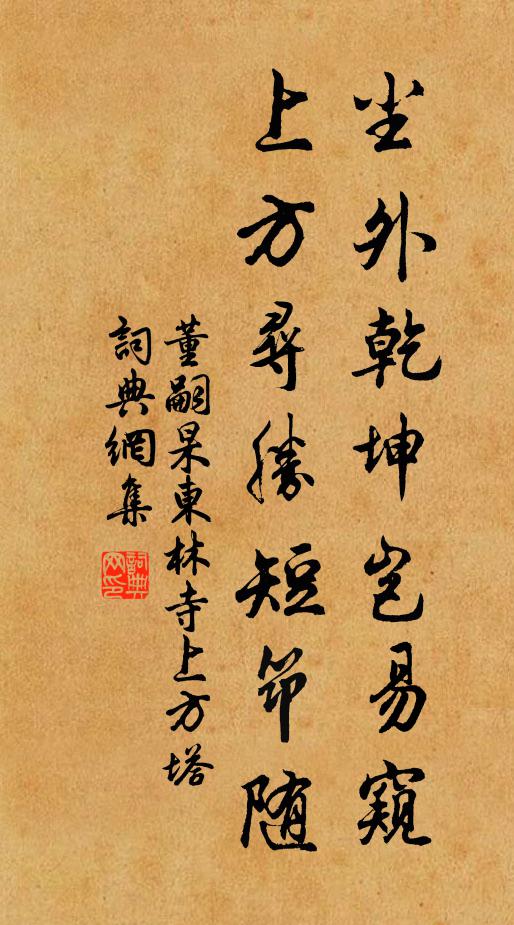 尘外乾坤岂易窺
上方尋勝短筇随
董嗣杲東林寺上方塔
詞典網集
詞典
网印